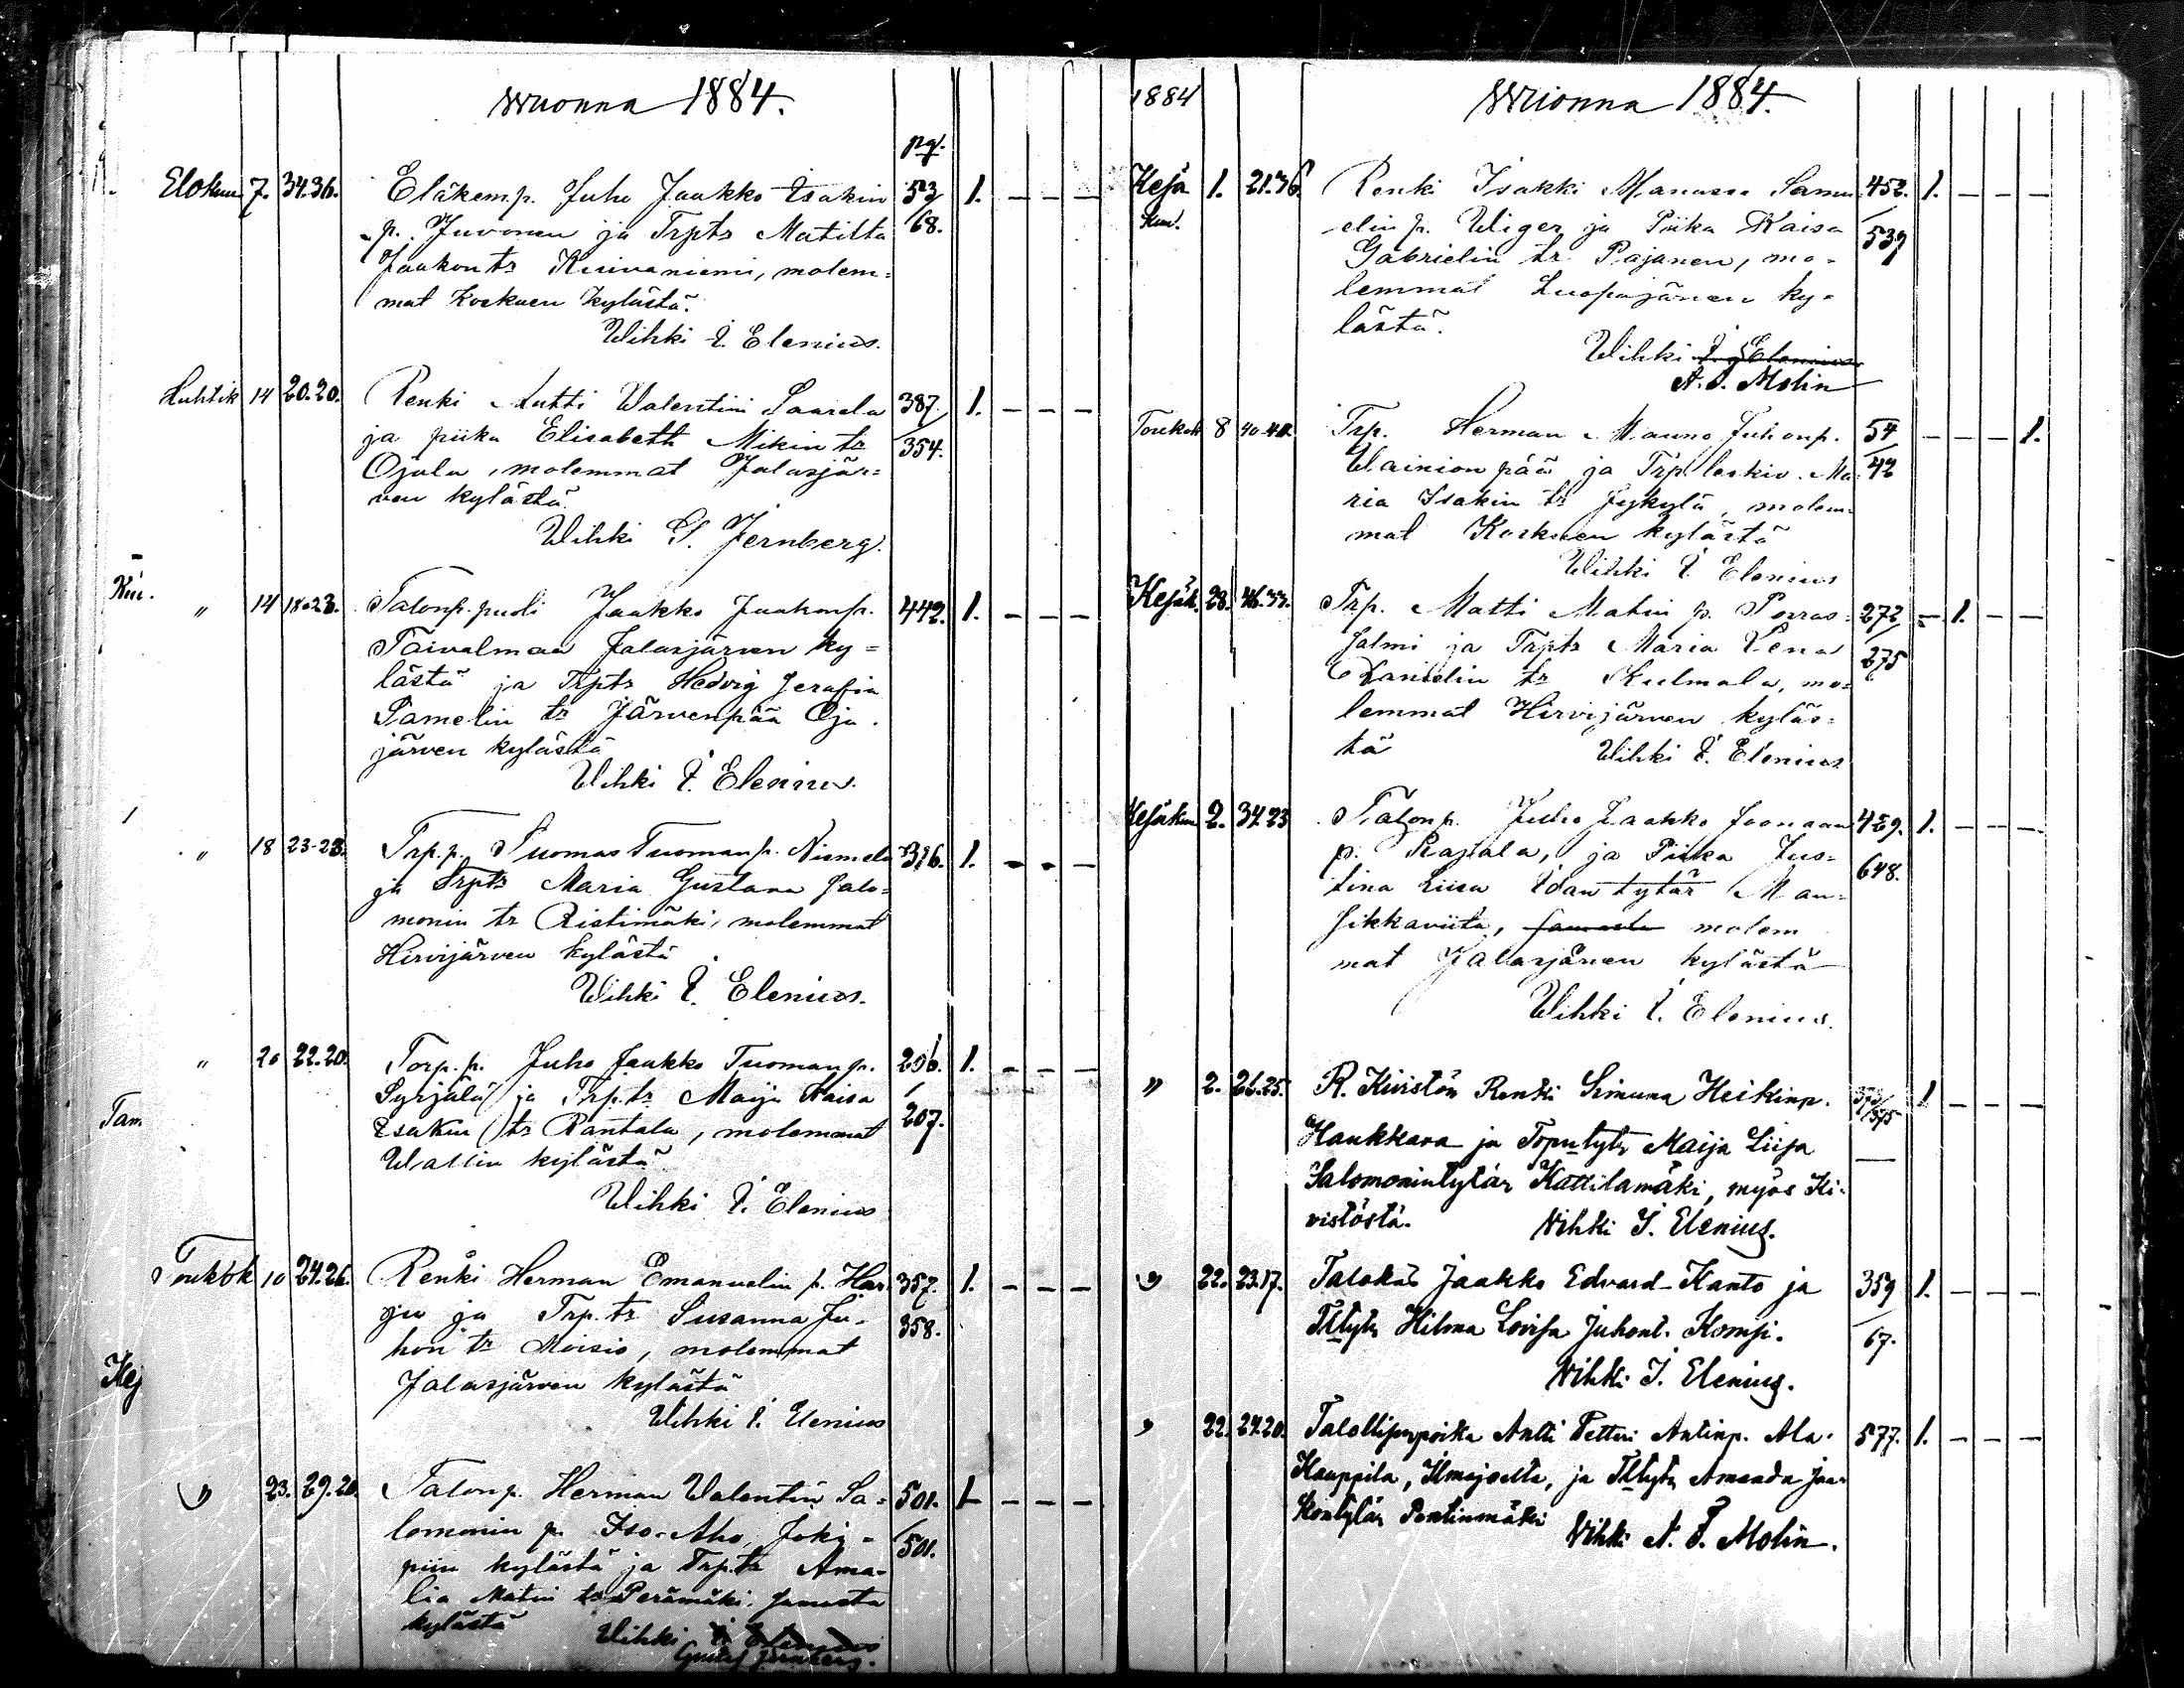 Wuonna 1884.
pg.
Elokuu 7. 34.36. Eläkem.p. Juho Jaakko Isakin 53/ 1. - - -
p. Juvonen ja Trpts Matilta 68.
Jaakon tr Kuivaniemi, molem=
mat Koskuen kylästä.
Wihki I. Elenius.
Huhtik 14 20.20. Renki Antti Walentin Saarela 387. 1. - - -
ja piika Elisabeth Mikin tr 354.
Ojala, molemmat Jalasjär=
ven kylästä.
Wihki G. Jernberg.
" 14 18.23. Talonp. puoli Jaakko Jaakonp. 442. 1. - - -
Taivalmaa Jalasjärven ky=
lästä ja Trpts Hedvig Serafia
Samelin tr Järvenpää Oja.
järven kylästä
Wihki I. Elenius.
" 18 23-23. Trp.p. Tuomas Tuomanp. Niemelä 316. 1. - - -
ja Trpts Maria Gustava Salo=
monin tr Ristimäki, molemmat
Hirvijärven kylästä.
Wihki I. Elenius.
" 20 22.20. Torp.p. Juho Jaakko Tuomanp. 206. 1. - - -
Syrjälä ja Trp.tr Maija Kaisa /
Isakin tr Rantala, molemmat 207.
Wallin kylästä.
Wihki I. Elenius
Toukok 10 24.26. Renki Herman Emanuelin p. Har 357. 1. - - -
ju ja Trp.tr Susanna Ju- 358.
hon tr Moisio, molemmat
Jalasjärven kylästä
Wihki I. Elenius
" 23. 29.20. Talonp. Herman Walentin Sa= 501. 1 - - -
lomonin p. Iso-Aho, Joki= /501.
piin kylästä ja Trp.tr Ama-
lia Matin tr Perämäki, samasta
kylästä Wihki I. Elenius
Gustaf Jernberg.
1884
Wuonna 1884.
Kesä 1. 21.36. Renki Isakki Manasse Samu 452. 1. - - -
kuu. elin p. Wiger ja Piika Kaisa /539
Gabrielin tr. Pajanen, mo-
lemmat Luopajärven ky=
lästä.
Wihki I. Elenius
A. I. Molin
Toukok 8 40.40. Trp. Herman Mauno Juhonp. 54 - - - 1.
Wainionpää ja Trp. leskiv. Ma 42
ria Isakin tr Jyskylä, molem-
mat Koskuen kylästä
Wihki I. Elenius
Kesäk. 28. Trp. Matti Matin p. Porras= 272/ - 1. - -
salmi ja Trpts Maria Lena 275
Danielin tr Kulmala, mo=
lemmat Hirvijärven kyläs=
tä Wihki I. Elenius
Kesäkuu 2. 34.23 Talonp. Juho Jaakko Joonaan 459. 1. - - -
p. Rajala, ja Piika Jus= 648.
tina Liisa Idan tytär Man=
sikkaviita, samasta molem
mat Jalasjärven kylästä
Wihki I. Elenius.
" 2. 21.25. R. Kiviston Renki Simuna Heikinp. 573/575 1 - - -
Haukkava ja Toputyts Maija Liisa
Salomonintytär Kattilamäki, myös Ki-
vistöstä. Vihki I. Elenius.
" 22. 23.17. Talokas Jaakko Edvard Kanto ja 359 1. - - -
Tltyts Hilma Lovisa Juhont. Kompi. /67.
Vihki I. Elenius.
" 22. 24.20. Talollisenpoika Antti Petteri Antinp. Ala- 577. 1. - - -
Kauppila, Ilmajoelta, ja Tltyts Amanda Jaa-
kontytär Pentinmäki
Vihki A. I. Molin.
Kui.
Tam
Kej